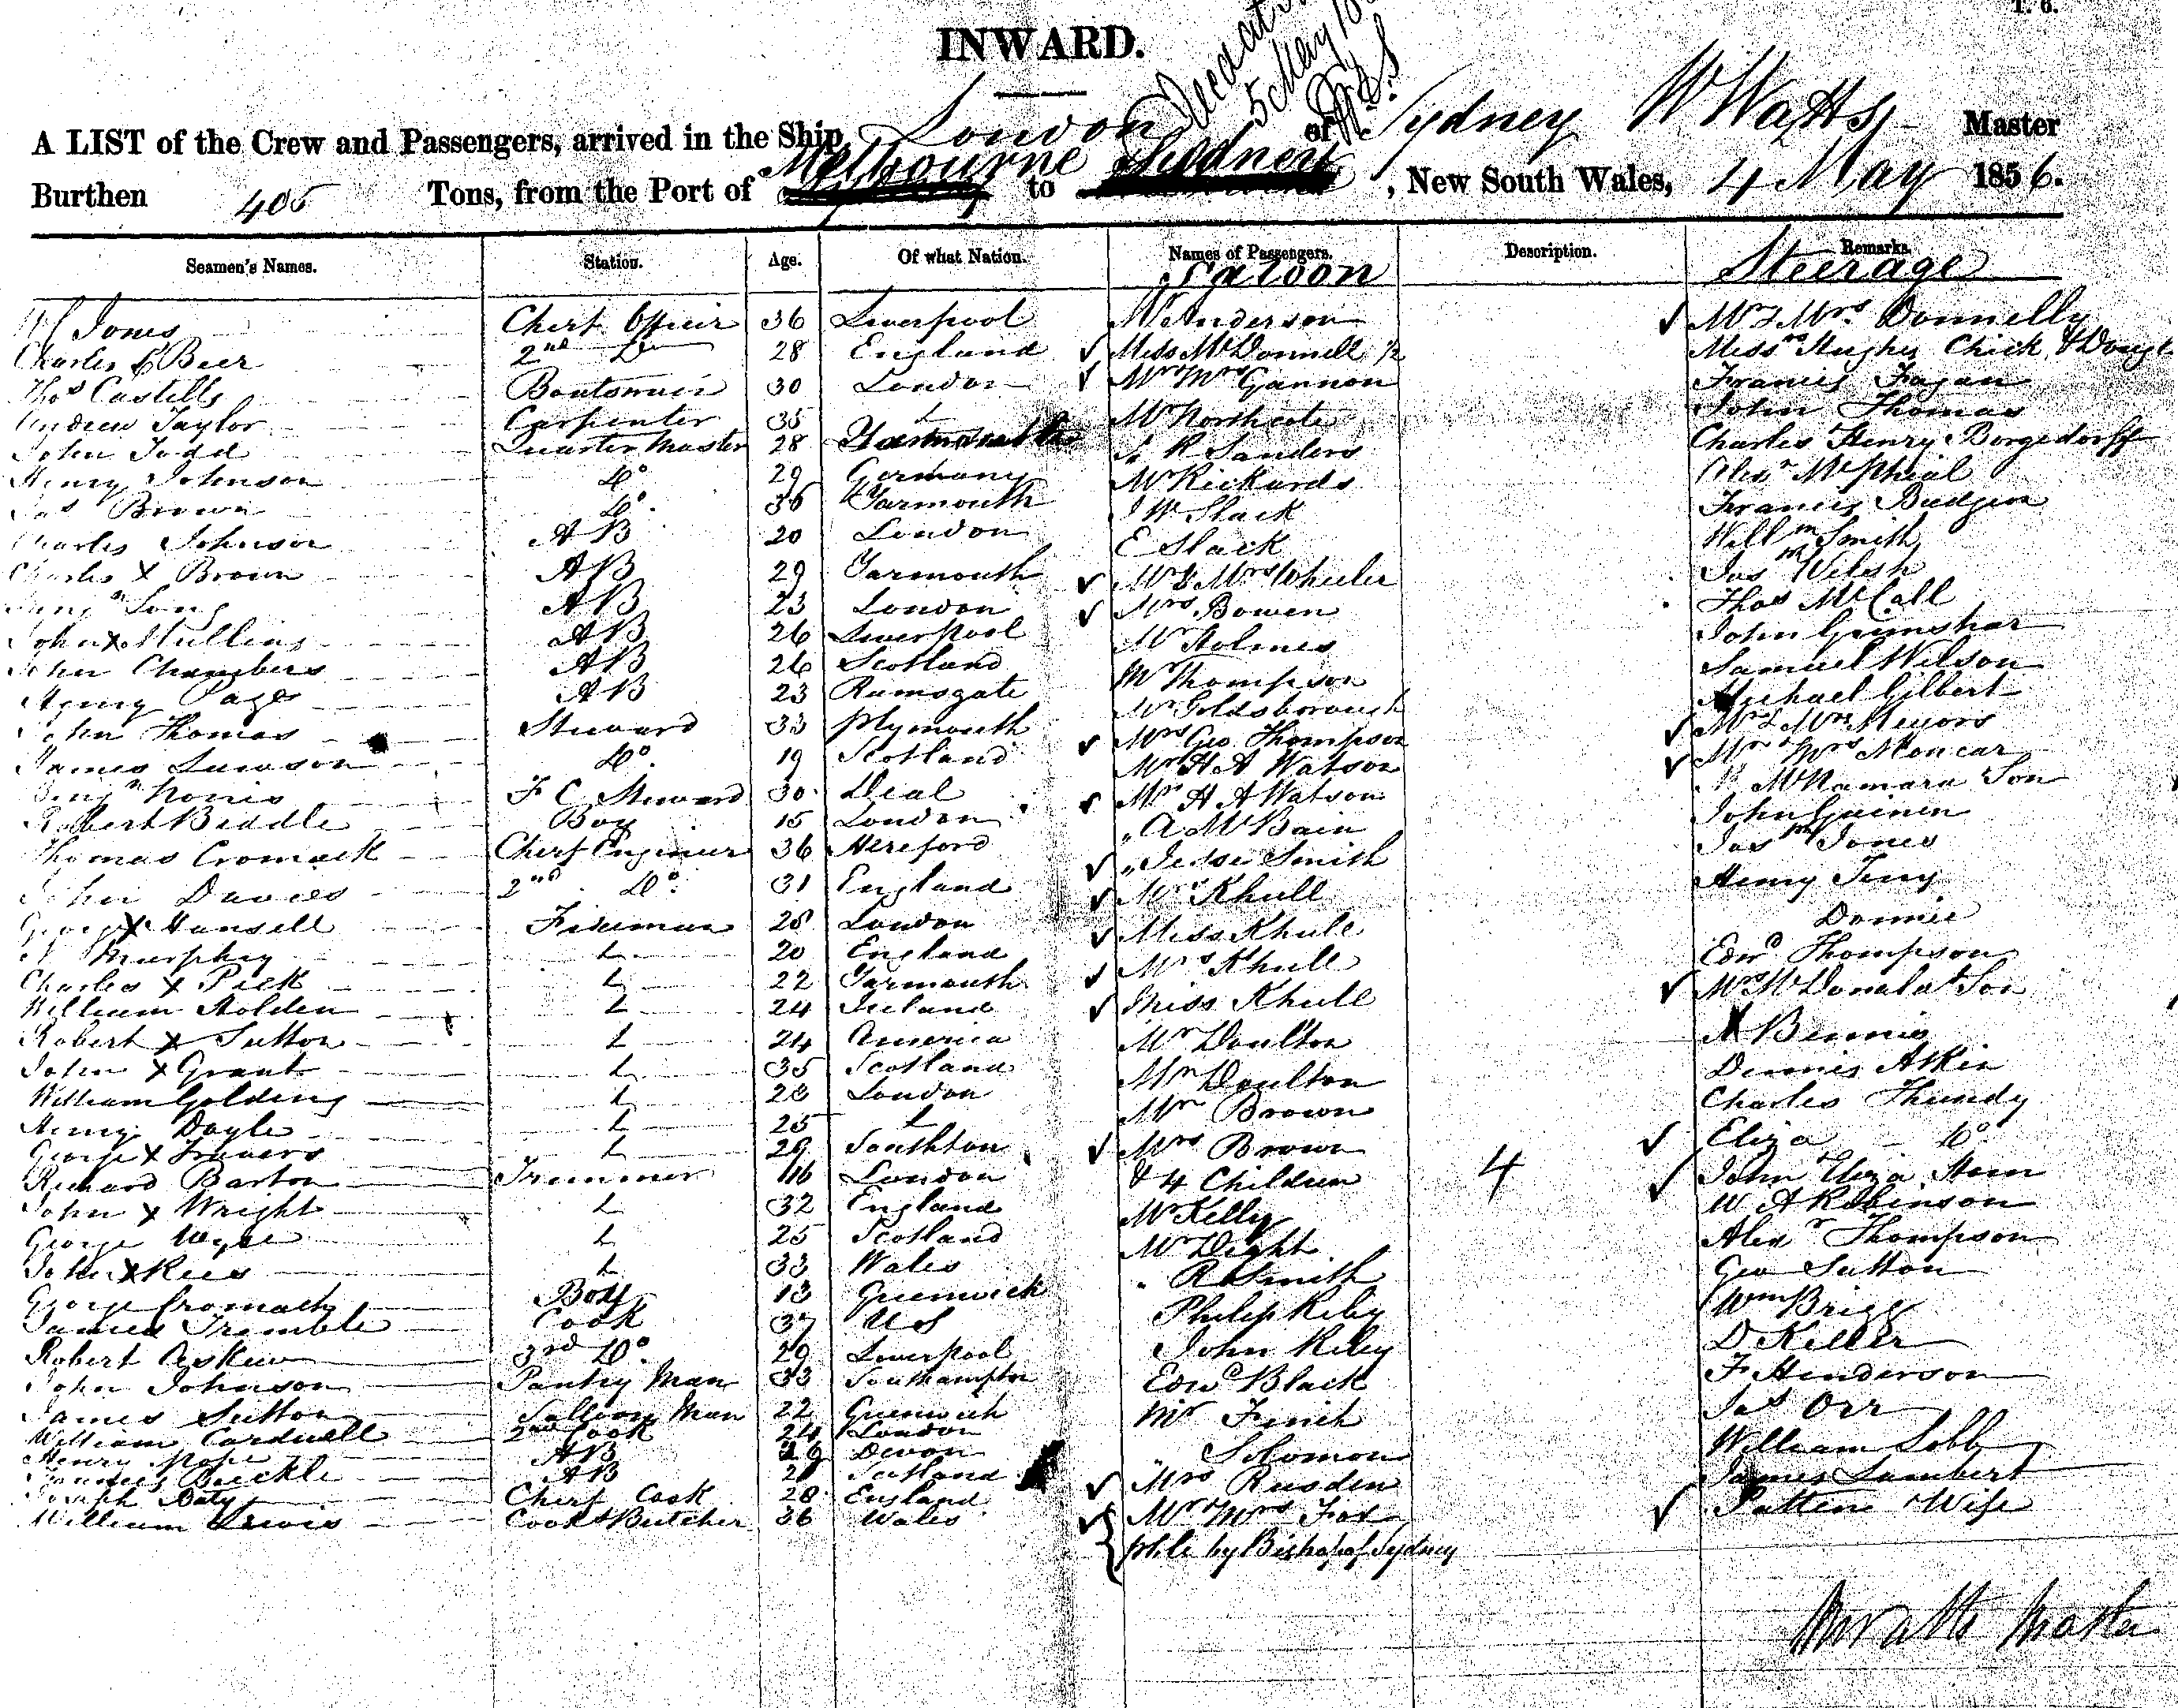 T. 6.
INWARD.
5 May
A LIST of the Crew and Passengers, arrived in the Ship London of Sydney W Watts Master
Burthen 405 Tons, from the Port of Melbourne to Sydney, New South Wales, 4 May 1856.
Seamen's Names. Station. Age. Of what Nation. Names of Passengers. Description. Remarks.
Saloon Steerage
Jones Chief Officer 36 Liverpool Mr Anderson Mr & Mrs Donnelly
Charles Beer 2nd Do 28 England Miss McDonnell Messrs Hughes Chick &
Thos Castells Boatswain 30 London Mr Mrs Gannon Francis Fagan
Andrew Taylor Carpenter 35 Mr Northcote John Thomas
John Todd Quarter Master 28 R Sanders Charles Henry Borgedorff
Henry Johnson Do 29 Germany Mr Rickards Alexr McPheal
Jas Brown Do 36 Yarmouth J W Slack Francis Budgeon
Charles Johnson AB 20 London E Slack Willm Smith
Charles X Brown AB 29 Yarmouth Mr & Mrs Wheeler Josh Welsh
Benjn Long AB 23 London Mrs Bowen Thos McCall
John X Mullins AB 26 Liverpool Mr Holmes John Grimshar
John Chambers AB 26 Scotland Mr Thompson Samuel Wilson
Henry Page AB 23 Ramsgate Mr Goldsborough Michael Gilbert
John Thomas Steward 33 Plymouth Mrs Geo Thompson Mr & Mrs Meyors
James Lawson Do 19 Scotland Mr H A Watson Mr Mrs Moncar
Benjn Norris F C Steward 30 Deal Mrs H A Watson McNamara Son
Robert Beddle Boy 15 London " A McBain John Gainen
Thomas Cromack Chief Engineer 36 Hereford " Jesse Smith Josh Jones
John Davies 2nd Do 31 England Mrs Khull Henry Terry
George X Hansell Fireman 28 London Miss Khull Dornie
Murphy 20 England Mrs Khull Edwd Thompson
Charles X Pick 22 Yarmouth Miss Khull Mrs McDonald & Son
William Holden 24 Ireland Mr Doulton Bennie
Robert X Sutton 24 America Mr Doulton Dennis Atkin
John X Grant 35 Scotland Mr Brown Charles Thundy
William Golding 28 London Mrs Brown Eliza Do
Henry Doyle 25 & 4 Children 4 John Eliza Horn
George X Travers 29 Southton Mr Kelly W A Robinson
Richard Barton Trimmer 16 London Mr Dight Alexr Thompson
John X Wright 32 England R Smith Geo Sutton
George Wyse 25 Scotland Philip Riley Wm Brigg
John X Rees 33 Wales John Riley D Keller
George Cromack Boy 13 Greenwich Edwd Black F Henderson
James Tremble Cook 37 US Mr Finch Jas Orr
Robert Askew 3rd Do 29 Liverpool Solomon William Lobb
John Johnson Pantry Man 33 Southampton Mrs Rusden James Lambert
James Sutton Man 22 Greenwich Mr Mrs Fox Patten Wife
William Cardwell 2nd Cook 24 London pble by Bishop of Sydney
Henry Pope AB Devon
Beckle AB Scotland
Joseph Baty Chief Cook 28 England
William Lewis Cook & Butcher 36 Wales
W Watts Master